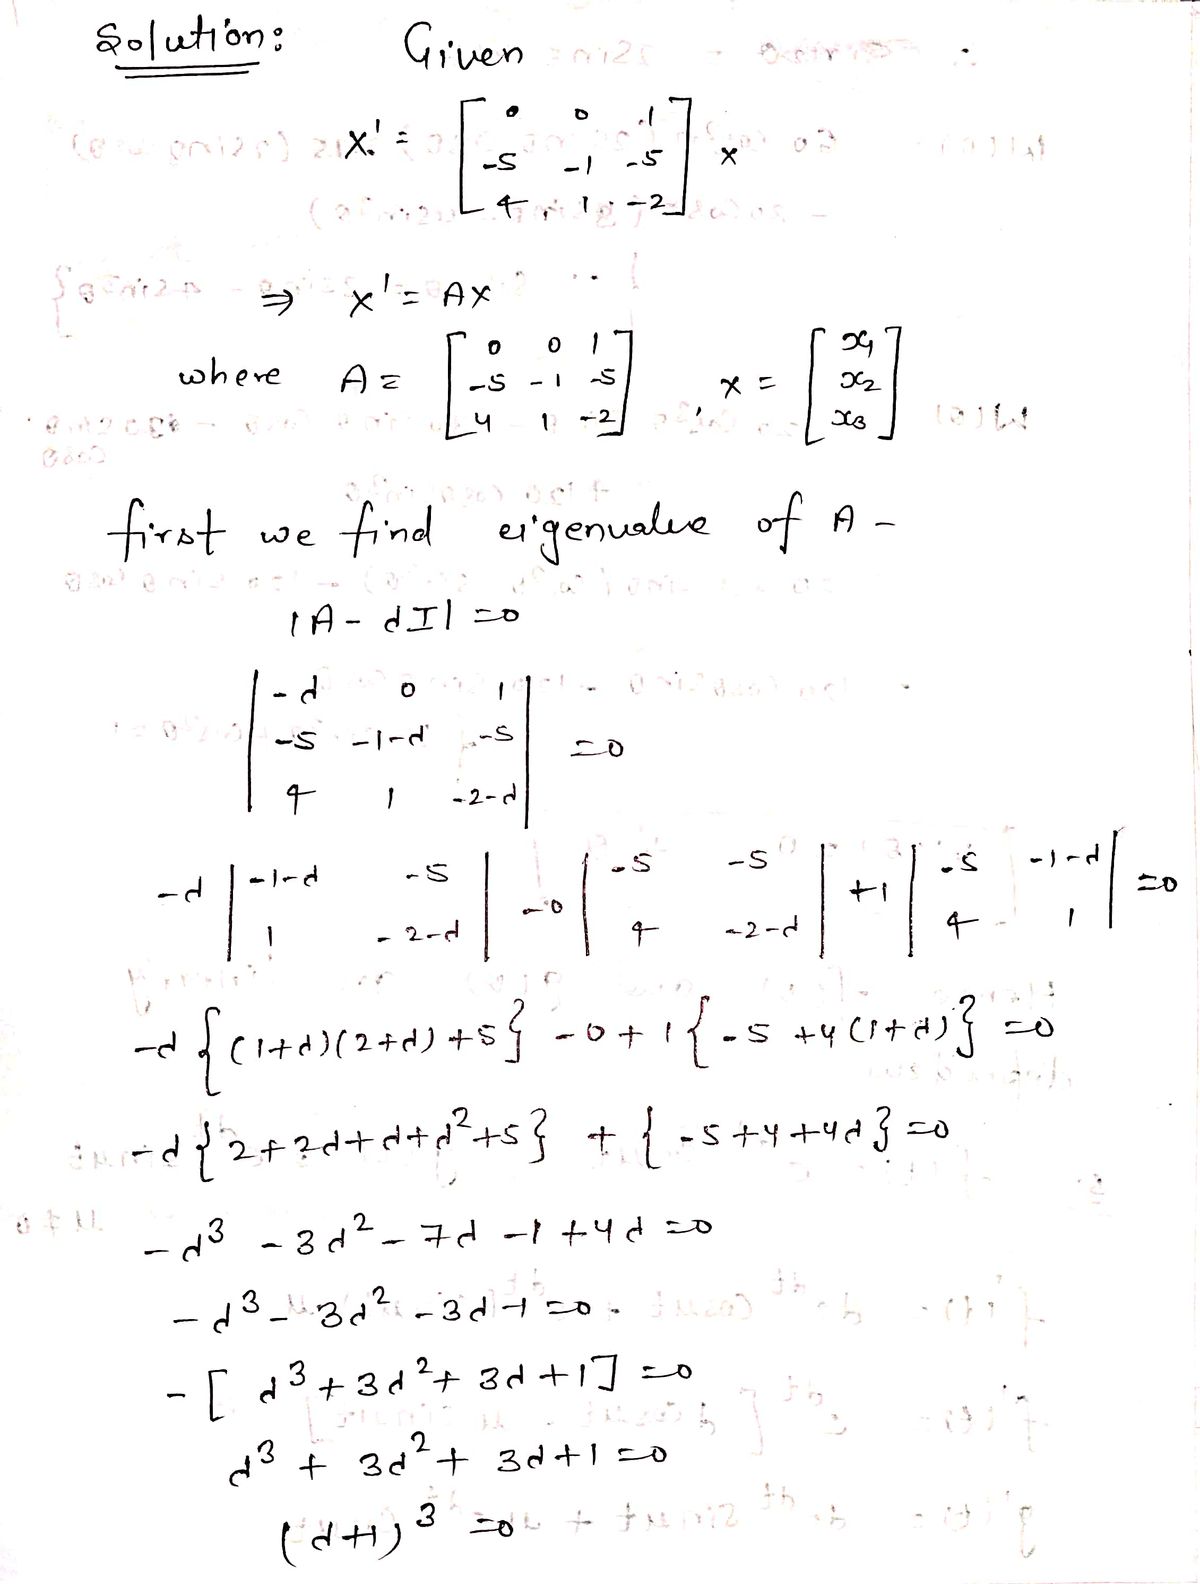 Solution: Given
x' = [ 0 0 1
-5 -1 -5
4 1 -2 ] x
⇒ x' = AX
where A = [ 0 0 1
-5 -1 -5
4 1 -2 ], x = [ x1
x2
x3 ]
first we find eigenvalue of A -
|A - dI| =0
| -d 0 1
-5 -1-d -5
4 1 -2-d | =0
-d | -1-d -5
1 -2-d | -0 | -5 -5
4 -2-d | +1 | -5 -1-d
4 1 | =0
-d { (1+d)(2+d) +5 } -0 + 1 { -5 +4 (1+d) } =0
-d { 2+2d+d+d²+5 } + { -5+4+4d } =0
-d³ -3d² -7d -1 +4d =0
-d³ -3d² -3d -1 =0
- [ d³ +3d² + 3d +1 ] =0
d³ + 3d² + 3d+1 =0
(d+1)³ =0